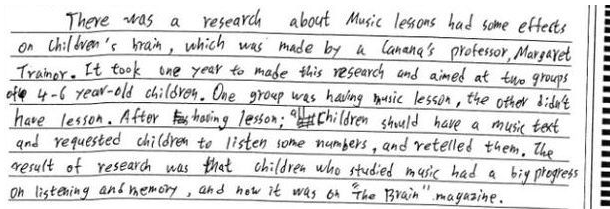 There was a research about Music lessons had some effects
on children's brain, which was made by a Canana's professor, Margaret
Trainor. It took one year to made this research and aimed at two groups
of 4-6 year-old children. One group was having music lesson, the other didn't
have lesson. After having lesson, all children should have a music text
and requested children to listen some numbers, and retelled them. The
result of research was that children who studied music had a big progress
on listening and memory, and now it was on "The Brain" magazine.